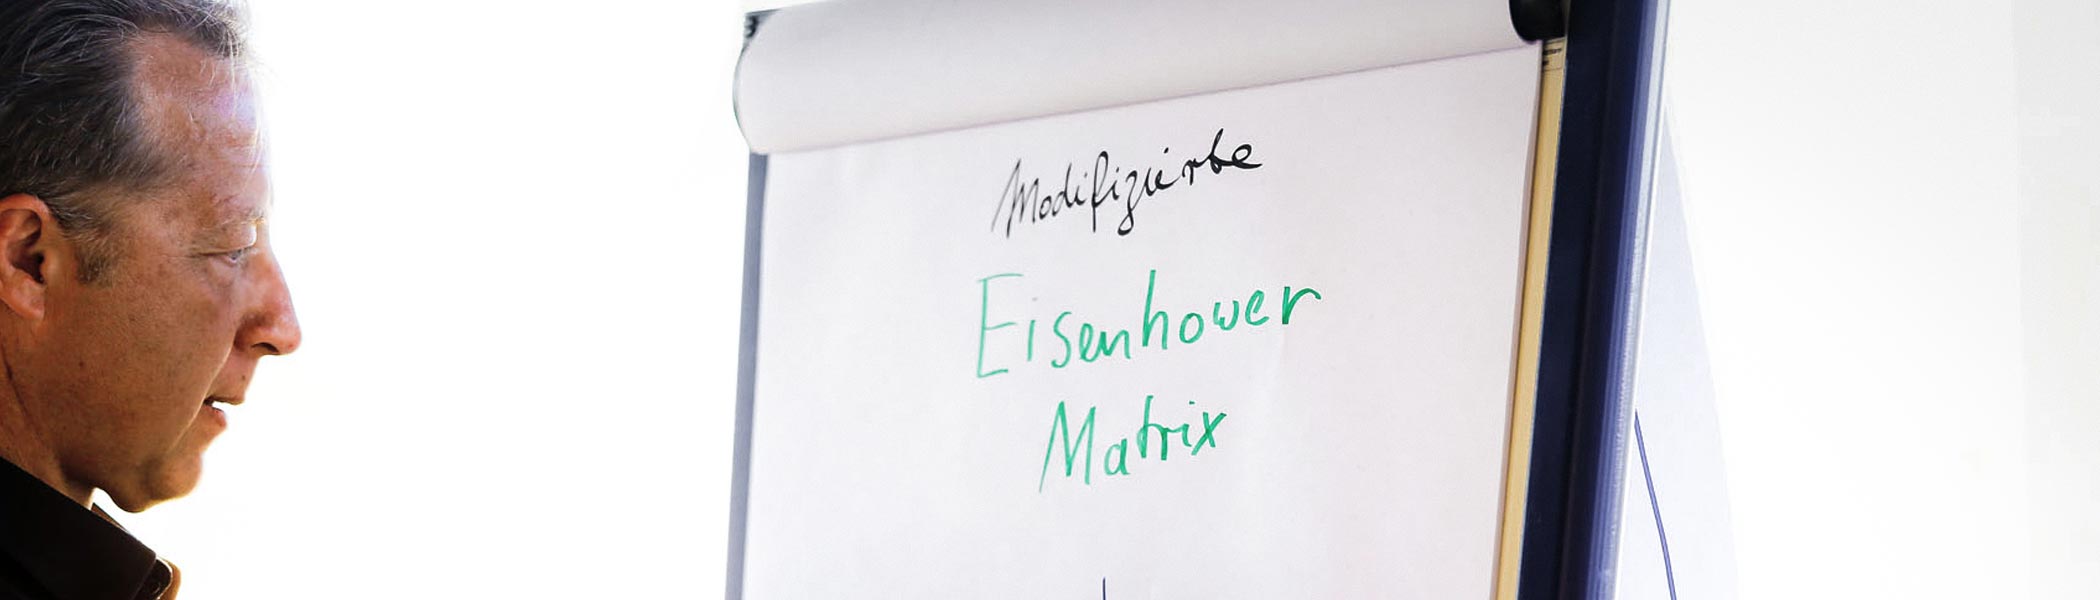 Modifizierte
Eisenhower
Matrix